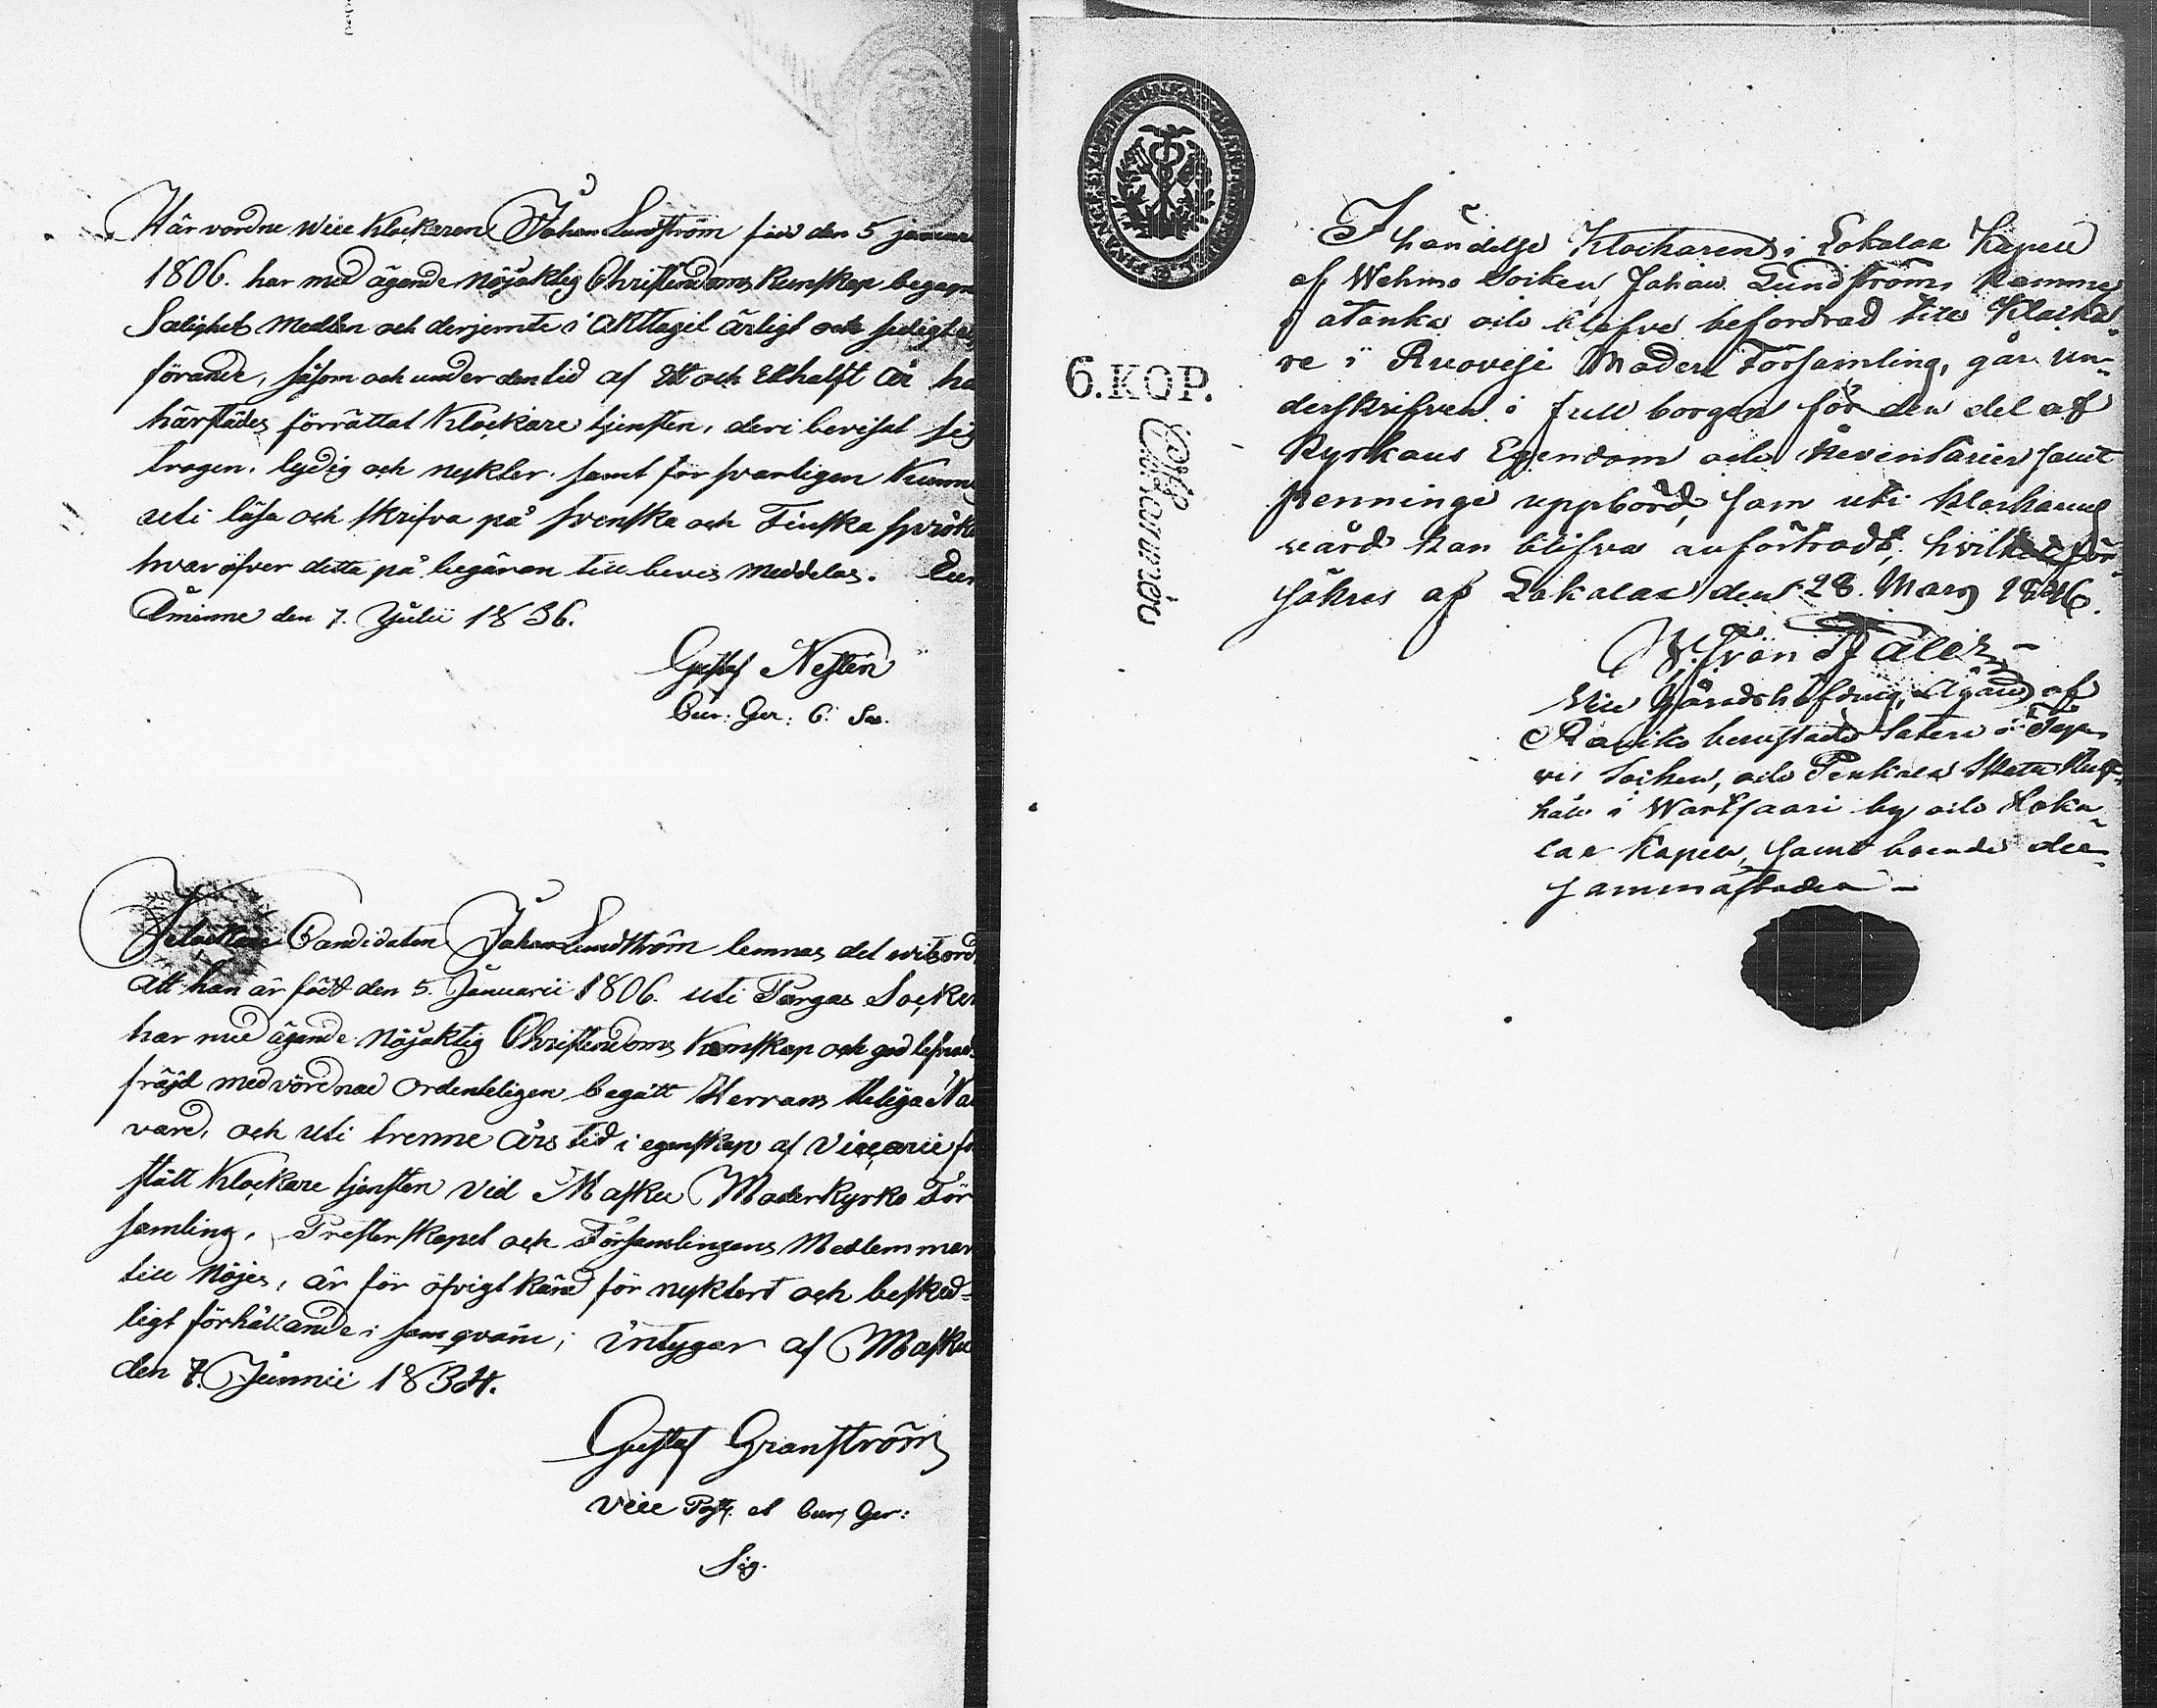 Här vordne Wice Klockaren Johan Lundström född den 5 januari
1806. har med ägande nöjaktig Christendoms Kunskap begagn
Salighets Medlen och derjemte i Allt tagit ärligt och sedigt
förande, såsom och under den tid af Ett och Etthalft år ha
härstädes förrättat Klockare tjensten, deri bevisat sig
trogen, lydig och nykter samt försvarligen Kunn
uti läsa och skrifva på Svenska och Finska språk
hvaröfver detta på begäran till bevis Meddelas.
Åminne den 7. Julii 1836.
Gustaf Neslén
Cur: Ger: C: Sac.
Klockare Candidaten Johan Lundström lemnas det witsord
Att han är född den 5. Januarii 1806. uti Pargas Socken
har med ägande nöjaktig Christendoms Kunskap och god lefnads
fräjd med vördnad ordenteligen begått Herrans Heliga Na
vard, och uti trenne års tid i egenskap af Vicarie fö
stått Klockare tjensten vid Masku Moderkyrko För
samling, Presterskapet och Församlingens Medlemmar
till Nöjes, är för öfrigt känd för nyktert och besked-
ligt förhållande i samqväm; intygar af Masku
den 7. Junnii 1834.
Gustaf Granström
Vice Past. et Cur. Ger:
Sig.
6.KOP.
I händelse Klockaren i Lokalax Kapell
af Wehmo Socken Johan Lundström, Komme
i åtanka och blefve befordrad till Klocka-
re i Ruovesi Moder Församling, går un-
derskrifven i full borgen för den del af
Kyrkans Egendom och Inventarier samt
penninge uppbörd, som uti Klockarens
vård kan blifva anförtrodt, hvilket för-
säkras af Lokalax den 28. Mars 1846.
Vice Häradshöfding, Ägare af
socken, och Penkala
håll i Wartsaari by och Loka-
lax Kapell, samt boende der-
sammastädes -